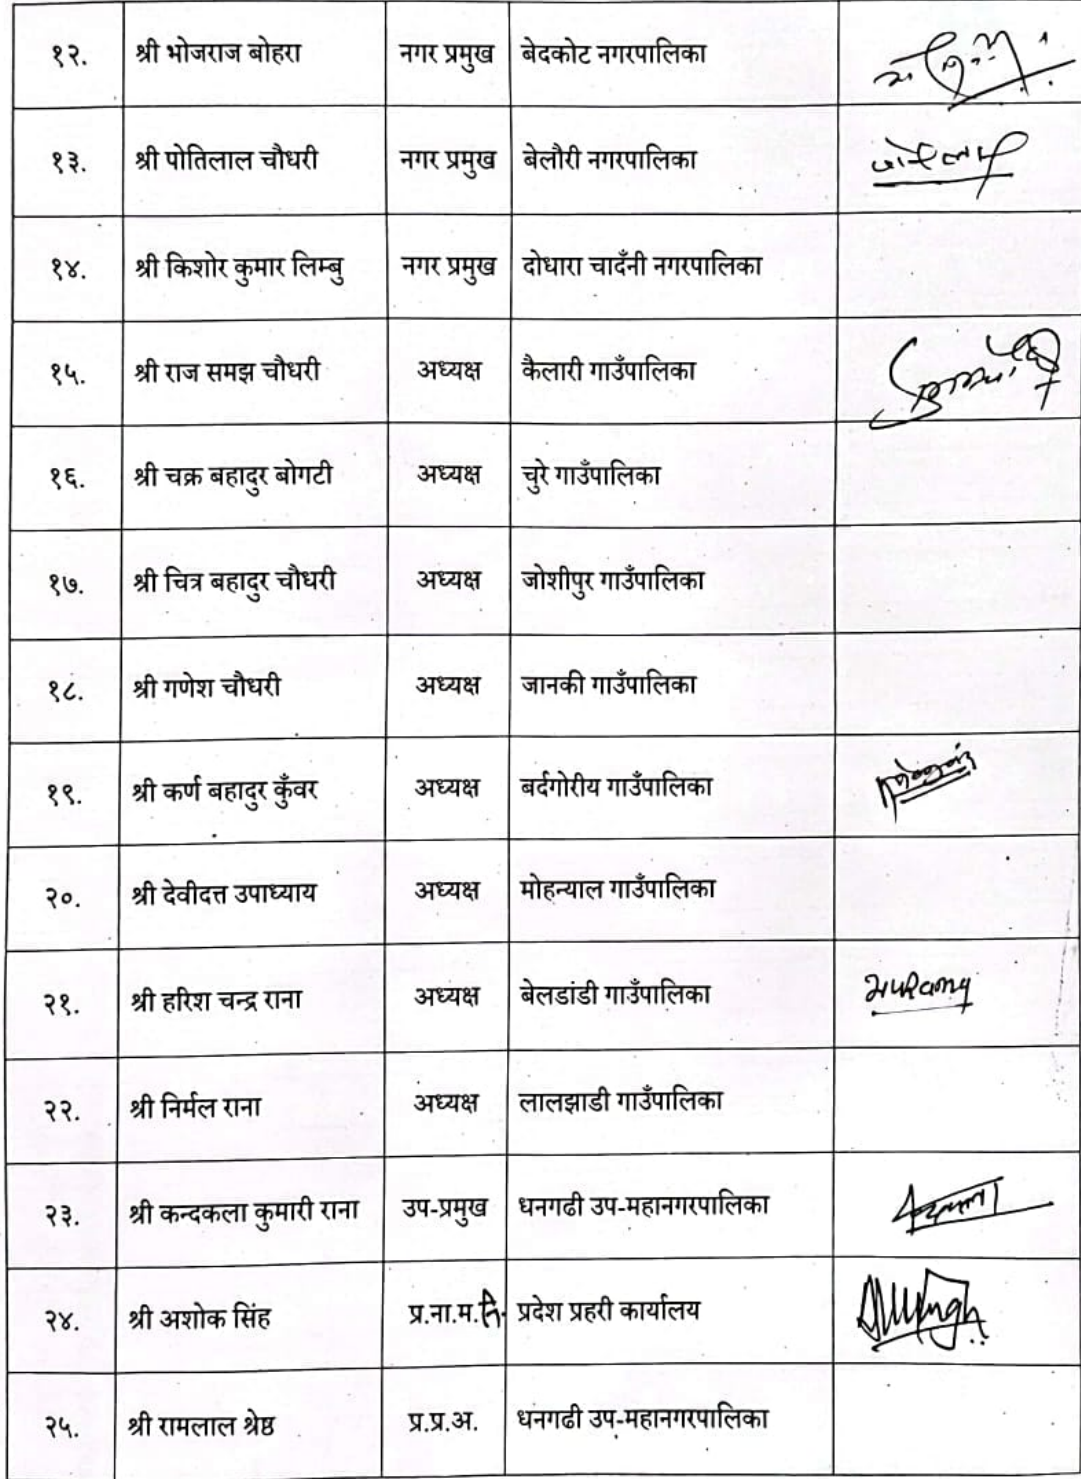 १२. श्री भोजराज बोहरा नगर प्रमुख बेदकोट नगरपालिका
१३. श्री पोतिलाल चौधरी नगर प्रमुख बेलौरी नगरपालिका
१४. श्री किशोर कुमार लिम्बु नगर प्रमुख दोधारा चादँनी नगरपालिका
१५. श्री राज समझ चौधरी अध्यक्ष कैलारी गाउँपालिका
१६. श्री चक्र बहादुर बोगटी अध्यक्ष चुरे गाउँपालिका
१७. श्री चित्र बहादुर चौधरी अध्यक्ष जोशीपुर गाउँपालिका
१८. श्री गणेश चौधरी अध्यक्ष जानकी गाउँपालिका
१९. श्री कर्ण बहादुर कुँवर अध्यक्ष बर्दगोरीय गाउँपालिका
२०. श्री देवीदत्त उपाध्याय अध्यक्ष मोहन्याल गाउँपालिका
२१. श्री हरिश चन्द्र राना अध्यक्ष बेलडांडी गाउँपालिका
२२. श्री निर्मल राना अध्यक्ष लालझाडी गाउँपालिका
२३. श्री कन्दकला कुमारी राना उप-प्रमुख धनगढी उप-महानगरपालिका
२४. श्री अशोक सिंह प्र.ना.म.नि. प्रदेश प्रहरी कार्यालय
२५. श्री रामलाल श्रेष्ठ प्र.प्र.अ. धनगढी उप-महानगरपालिका